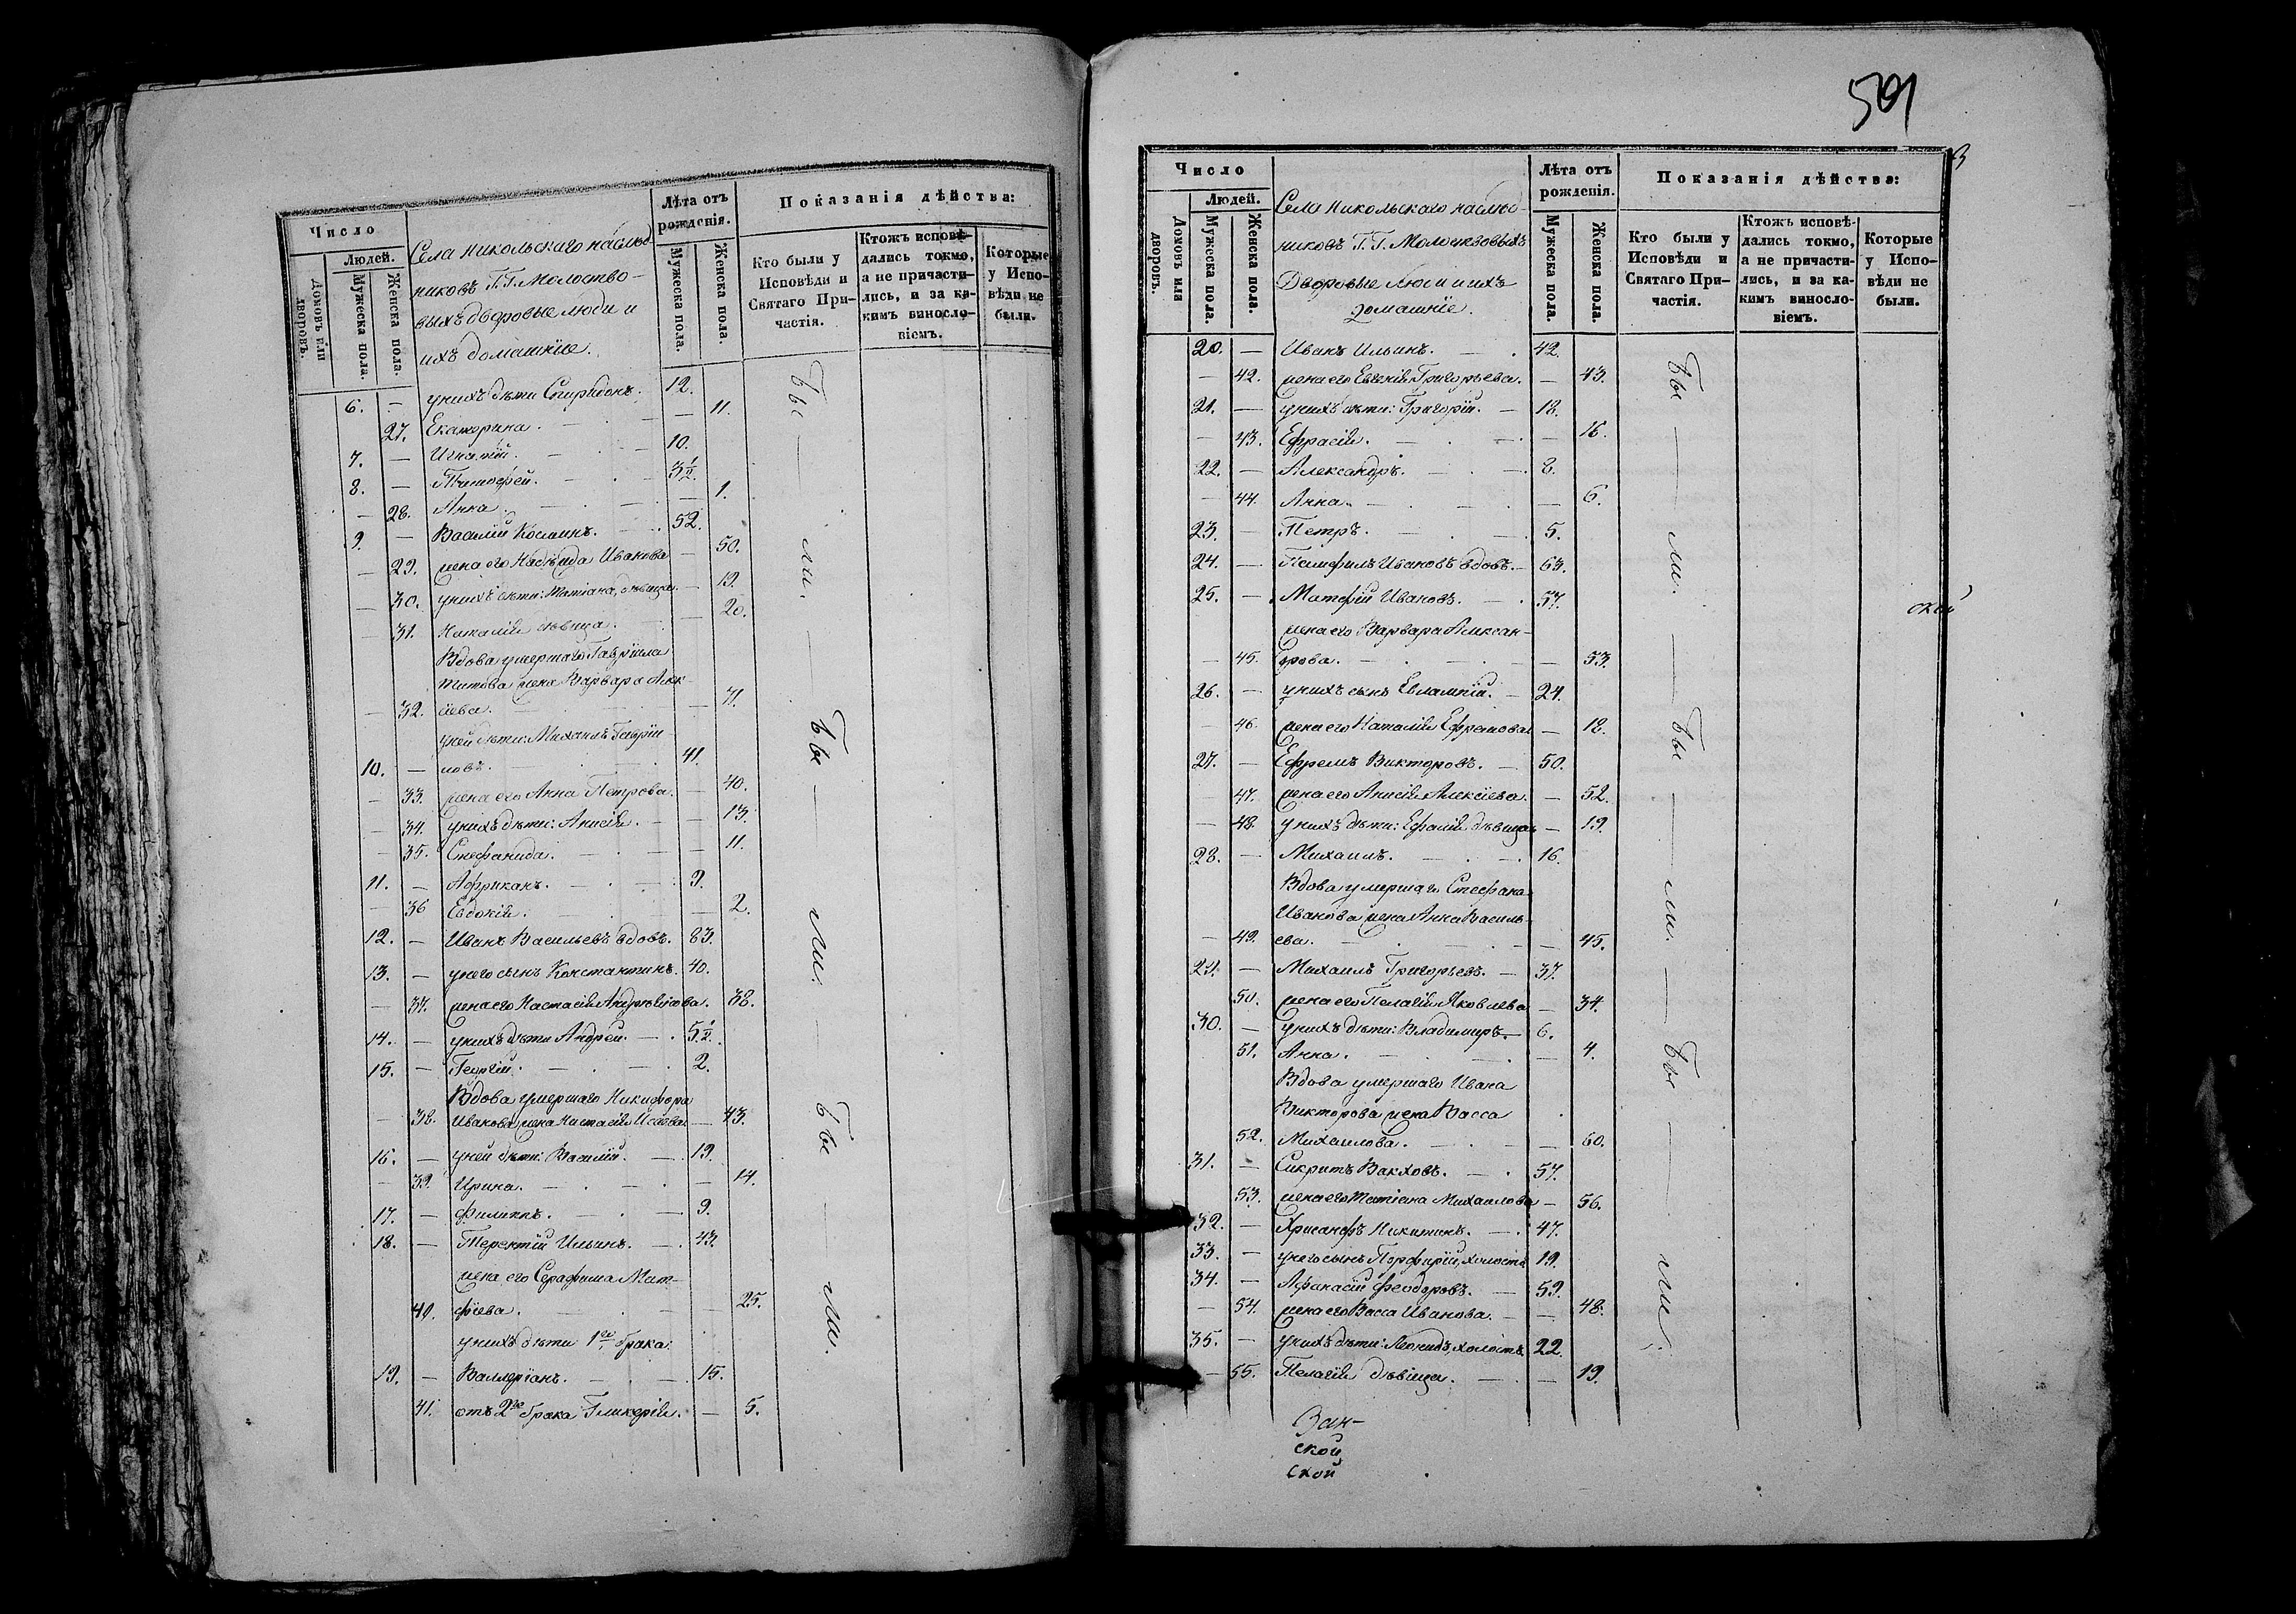 Число
Людей.
Домовъ или дворовъ.
Мужеска пола.
Женска пола.
Села Никольскаго наслѣд-
никовъ Г.Г. Молоство-
выхъ дворовые люди и
ихъ домашніе.
Лѣта отъ рожденія.
Мужеска пола.
Женска пола.
Показанія дѣйства:
Кто были у Исповѣди и Святаго При-частія.
Ктожъ исповѣ-дались токмо, а не причасти-лись, и за ка-кимъ винословіемъ.
Которые у Испо-вѣди не были.
6. — у нихъ дѣти Спиридонъ. 12.
27. Екатерина. — 11.
7. — Игнатій. 10.
8. — Тимофей. 3½.
— 28. Анна. — 1.
9. — Василій Косминъ. 52.
— 29. жена его Надежда Иванова — 50.
— 30. у нихъ дѣти: Татіана, дѣвица. — 19.
— 31. Наталія дѣвица. — 20.
Вдова умершаго Гавріила
Титова жена Варвара Алек-
— 32. сіева. — 71.
у ней дѣти: Михаилъ Гаврі-
10. — ловъ. 41.
— 33. жена его Анна Петрова. — 40.
— 34. у нихъ дѣти: Анисія. — 13.
— 35. Стефанида. — 11.
11. — Африканъ. 9.
— 36 Евдокія. — 2.
12. — Иванъ Васильевъ вдовъ. 83.
13. — у него сынъ Константинъ. 40.
— 37. жена его Настасія Андреянова. 38.
14. — у нихъ дѣти Андрей. 5½.
15. — Георгій. 2.
Вдова умершаго Никифора
— 38. Иванова жена Настасія Исаева — 43.
16. — у ней дѣти: Василій. 19.
— 39. Ирина. — 14.
17. — Филипъ. 9.
18. — Терентій Ильинъ. 43.
жена его Серафима Мат-
40. фіева. — 25.
у нихъ дѣти 1го брака
19. — Валлеріанъ. 15.
41. отъ 2го брака Гликерія. — 5.
Бы — ли. — Бы — ли. — Бы — ли.
501
Число
Людей.
Домовъ или дворовъ.
Мужеска пола.
Женска пола.
Села Никольскаго наслѣд-
никовъ Г.Г. Молоствовыхъ
Дворовые люди и ихъ
домашніе.
Лѣта отъ рожденія.
Мужеска пола.
Женска пола.
Показанія дѣйства:
Кто были у Исповѣди и Святаго При-частія.
Ктожъ исповѣ-дались токмо, а не причасти-лись, и за ка-кимъ винословіемъ.
Которые у Испо-вѣди не были.
20. — Иванъ Ильинъ. 42.
— 42. жена его Евгенія Григорьева. — 43.
21. — у нихъ дѣти: Григорій. — 18.
— 43. Ефрасія. — 16.
22. — Александръ. 8.
— 44. Анна. — 6.
23. — Петръ. 5.
24. — Памфилъ Ивановъ вдовъ. — 63.
25. — Матфій Ивановъ. 57.
жена его Варвара Алексан-
— 45. дрова. — 53.
26. — у нихъ сынъ Евлампій. — 24.
— 46. жена его Наталія Ефремова — 18.
27. — Ефремъ Викторовъ. — 50.
— 47. жена его Анисія Алексіева. — 52.
— 48. у нихъ дѣти: Ефалія дѣвица — 19.
28. — Михаилъ. 16.
Вдова умершаго Стефана
Иванова жена Анна Василь-
— 49. ева. — 45.
29. — Михаилъ Григорьевъ. — 37.
50. жена его Пелагія Яковлева — 34.
30. — у нихъ дѣти: Владимиръ. — 6.
51. Анна. — 4.
Вдова умершаго Ивана
Викторова жена Васса
52. Михаилова. — 60.
31. — Сикритъ Вакховъ. 57.
53. жена его Татіана Михаилова — 56.
32. — Хрисанфъ Никитинъ. 47.
33. — у него сынъ Порфирій, холостъ 19.
34. — Афанасій Феодоровъ. — 59.
— 54. жена его Васса Иванова. — 48.
35. — у нихъ дѣти: Леонидъ, холостъ. 22.
— 55. Пелагія дѣвица. — 19.
Бы — ли. — Бы — ли. — Бы — ли.
ской
Зак-
ской
ской